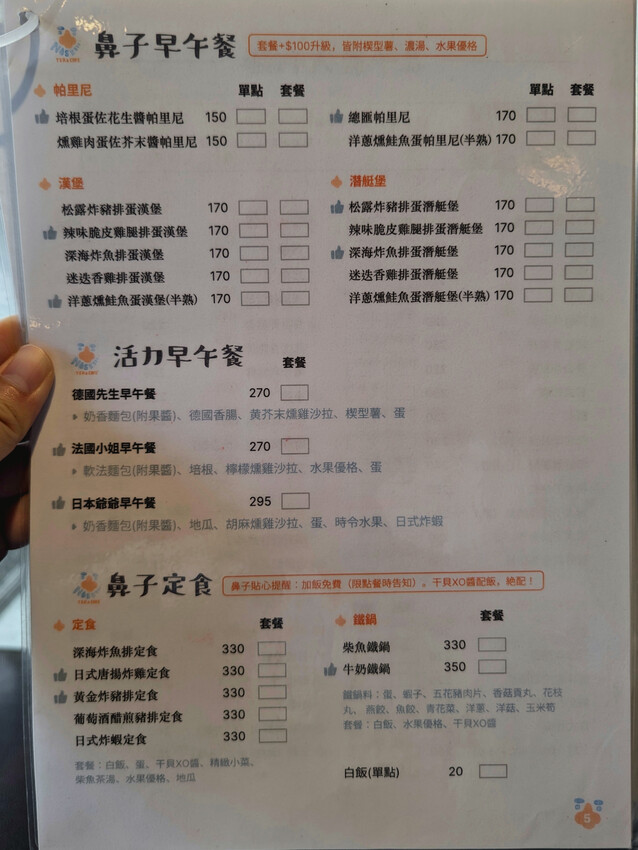 鼻子早午餐 套餐+$100升級，皆附楔型薯、濃湯、水果優格
帕里尼 單點 套餐 單點 套餐
培根蛋佐花生醬帕里尼 150
燻雞肉蛋佐芥末醬帕里尼 150
總匯帕里尼 170
洋蔥燻鮭魚蛋帕里尼(半熟) 170
漢堡
松露炸豬排蛋漢堡 170
辣味脆皮雞腿排蛋漢堡 170
深海炸魚排蛋漢堡 170
迷迭香雞排蛋漢堡 170
洋蔥燻鮭魚蛋漢堡(半熟) 170
潛艇堡
松露炸豬排蛋潛艇堡 170
辣味脆皮雞腿排蛋潛艇堡 170
深海炸魚排蛋潛艇堡 170
迷迭香雞排蛋潛艇堡 170
洋蔥燻鮭魚蛋潛艇堡(半熟) 170
活力早午餐 套餐
德國先生早午餐 270
奶香麵包(附果醬)、德國香腸、黃芥末燻雞沙拉、楔型薯、蛋
法國小姐早午餐 270
軟法麵包(附果醬)、培根、檸檬燻雞沙拉、水果優格、蛋
日本爺爺早午餐 295
奶香麵包(附果醬)、地瓜、胡麻燻雞沙拉、蛋、時令水果、日式炸蝦
鼻子定食 鼻子貼心提醒：加飯免費（限點餐時告知）。干貝XO醬配飯，絶配！
定食 套餐
深海炸魚排定食 330
日式唐揚炸雞定食 330
黃金炸豬排定食 330
葡萄酒醋煎豬排定食 330
日式炸蝦定食 330
套餐：白飯、蛋、干貝XO醬、精緻小菜、
柴魚茶湯、水果優格、地瓜
鐵鍋 套餐
柴魚鐵鍋 330
牛奶鐵鍋 350
鐵鍋料：蛋、蝦子、五花豬肉片、香菇貢丸、花枝
丸、燕餃、魚餃、青花菜、洋蔥、洋菇、玉米筍
套餐：白飯、水果優格、干貝XO醬
白飯(單點) 20
5